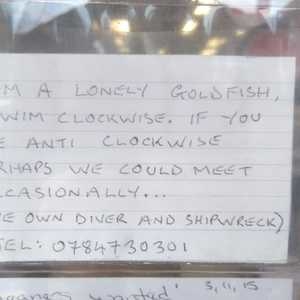 M A LONELY GOLDFISH,
WIM CLOCKWISE. IF YOU
E ANTI CLOCKWISE
RHAPS WE COULD MEET
CASIONALLY...
E OWN DIVER AND SHIPWRECK)
TEL: 0784730301
wanted' 3, 11, 15